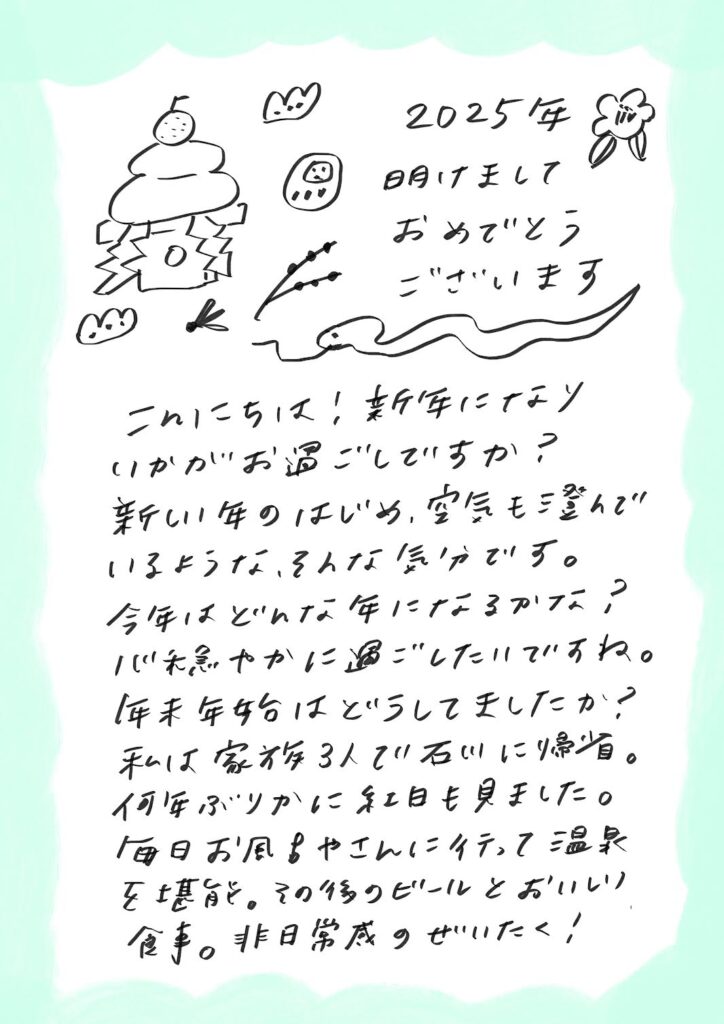 2025年
明けまして
おめでとう
ございます
こんにちは！新年になり
いかがお過ごしですか？
新しい年のはじめ、空気も澄んで
いるような、そんな気分です。
今年はどんな年になるかな？
心穏やかに過ごしたいですね。
年末年始はどうしてましたか？
私は家族3人で石川に帰省。
何年ぶりかに紅白も見ました。
毎日お風ちやさんに行って温泉
を堪能。その後のビールとおいしい
食事。非日常感のぜいたく！